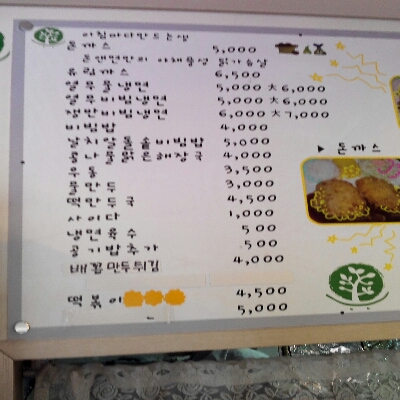 아침마다만드는생
돈까스 5,000
돈앤면만의 야채듬성 닭가슴살
유림까스 6,500
열무물냉면 5,000 大6,000
열무비빔냉면 5,000 大6,000
쟁반비빔냉면 6,000 大7,000
비빔밥 4,000
날치알돌솥비빔밥 5,000
콩나물맑은해장국 4,000
우동 3,500
물만두 3,000
떡만두국 4,500
사이다 1,000
냉면육수 500
공기밥추가 500
배꼽만두튀김 4,000
떡볶이 4,500
5,000
▶ 돈까스